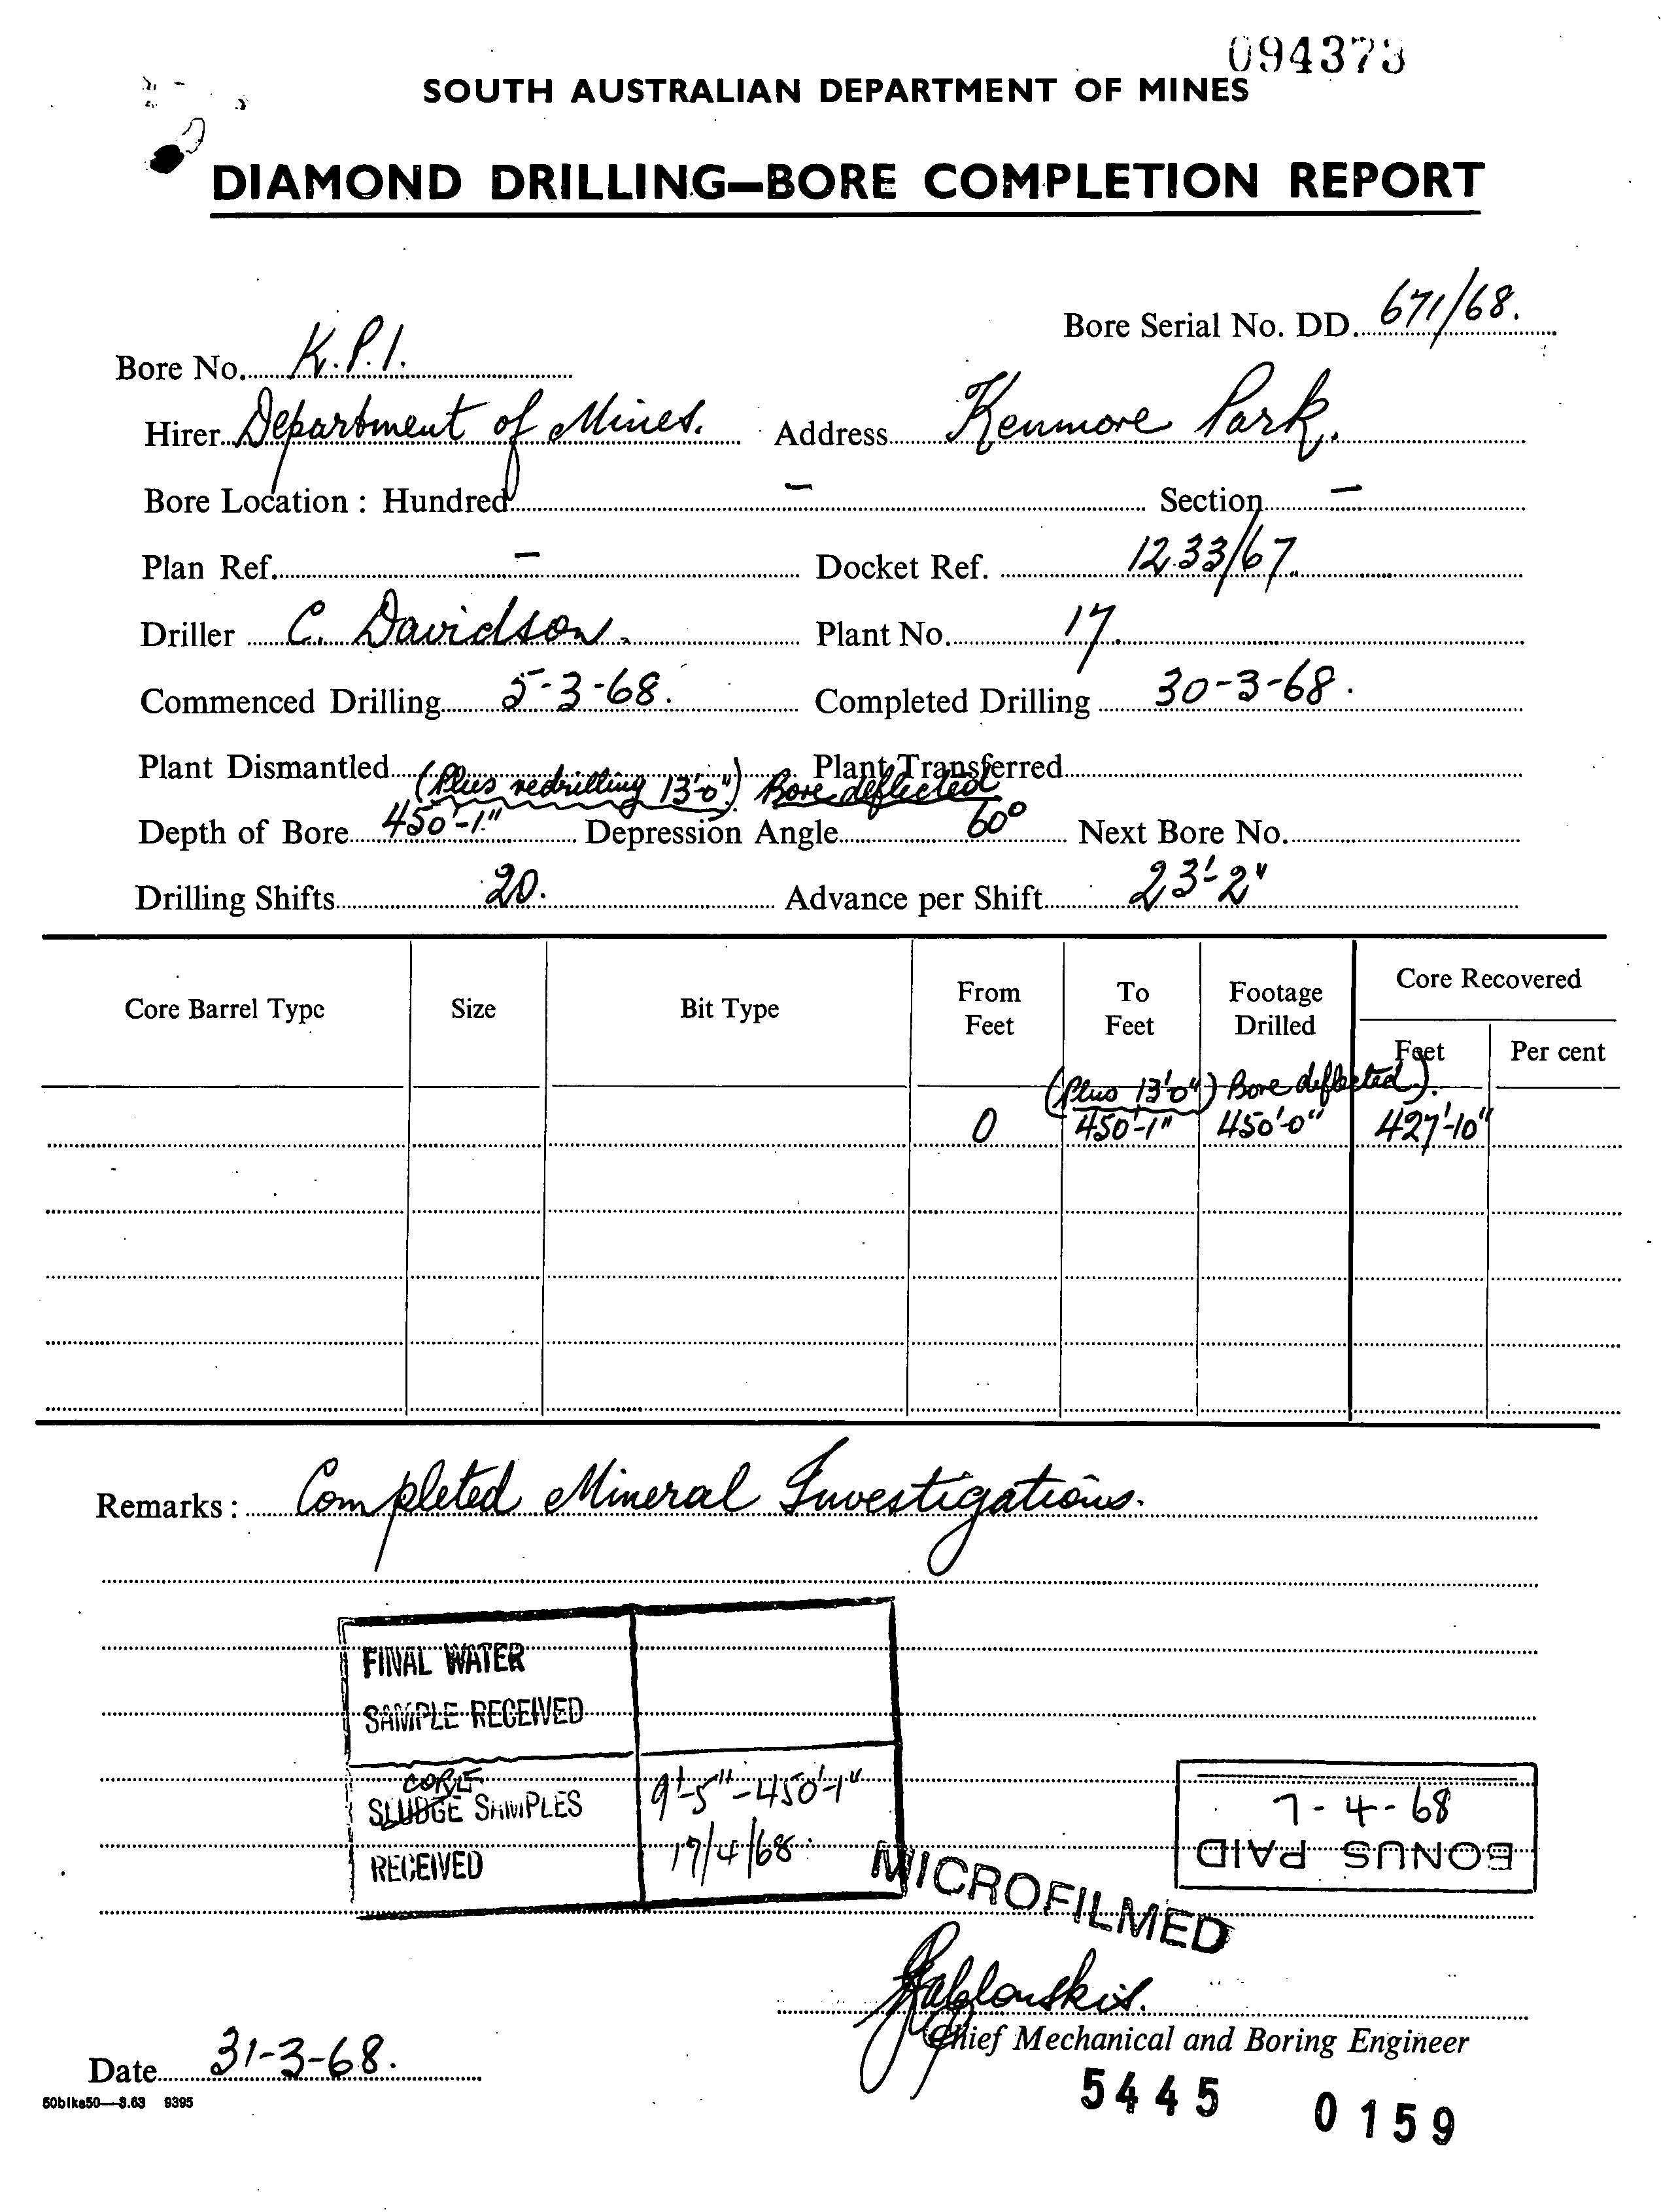 094373
SOUTH AUSTRALIAN DEPARTMENT OF MINES
DIAMOND DRILLING—BORE COMPLETION REPORT
Bore Serial No. DD. 671/68.
Bore No. K.P.1.
Hirer Department of Mines. Address Kenmore Park.
Bore Location : Hundred - Section -
Plan Ref. - Docket Ref. 1233/67.
Driller C. Davidson. Plant No. 17.
Commenced Drilling 5-3-68. Completed Drilling 30-3-68.
Plant Dismantled Plant Transferred
(Plus redrilling 13'-0") Bore deflected
Depth of Bore 450'-1" Depression Angle 60° Next Bore No.
Drilling Shifts 20. Advance per Shift 23'-2"
Core Barrel Type Size Bit Type From Feet To Feet Footage Drilled Core Recovered
Feet Per cent
(Plus 13'0") Bore deflected).
0 450'-1" 450'-0" 427'-10"
Remarks : Completed Mineral Investigations.
FINAL WATER
SAMPLE RECEIVED
CORE
SLUDGE SAMPLES 9'-5"-450'-1"
RECEIVED 17/4/68.
7-4-68
BONUS PAID
MICROFILMED
Chief Mechanical and Boring Engineer
Date 31-3-68.
50blks50—8.63 9395
5445 0159